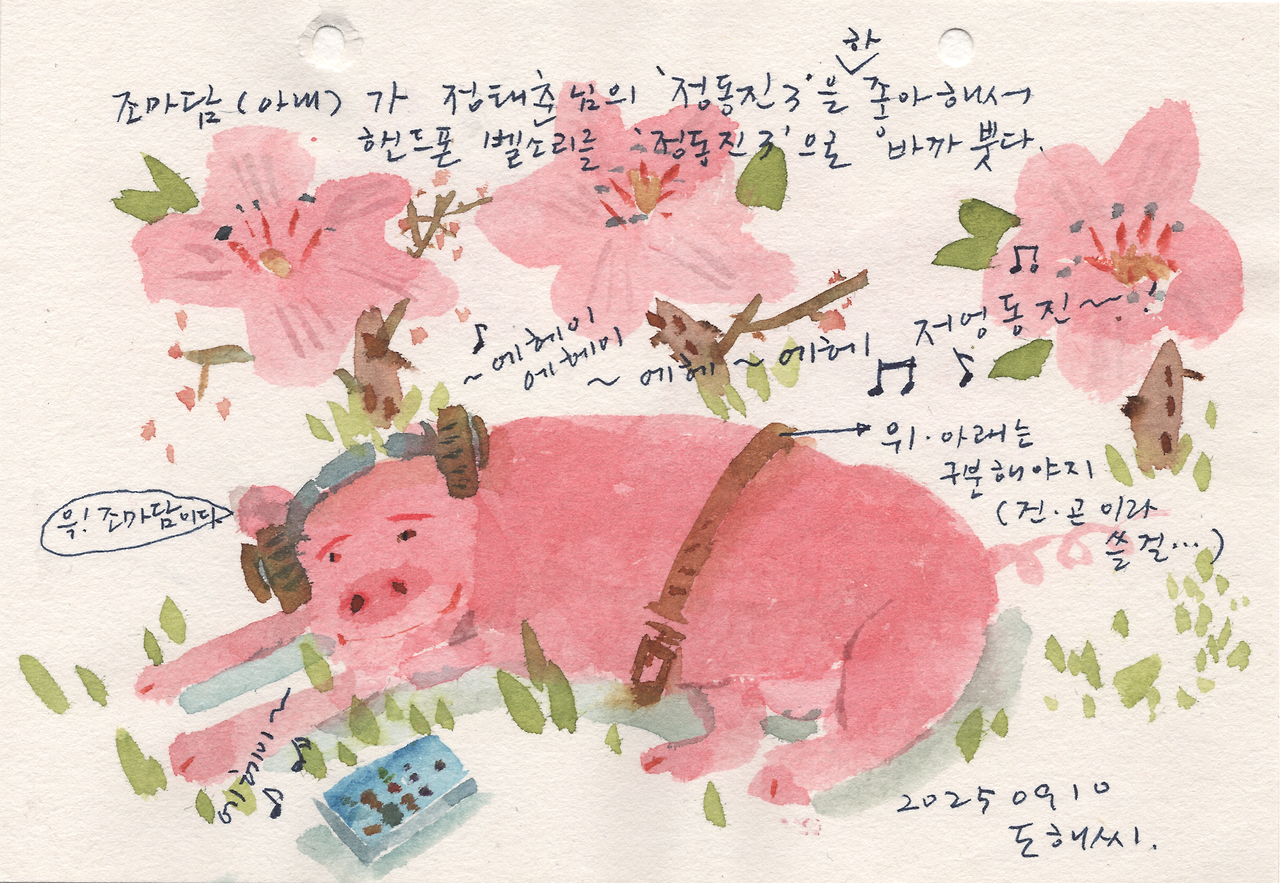 조마담(아내)가 정태춘님의 '정동진3'을 하
좋아해서
핸드폰 벨소리를 '정동진3'으로 바까뿟다.
♪
~에헤이
에헤이
~에헤~에헤
♫
저엉동진~!
위·아래는
구분해야지
(건·곤이라
쓸걸...)
윽! 조마담이다
20250910
도해씨.